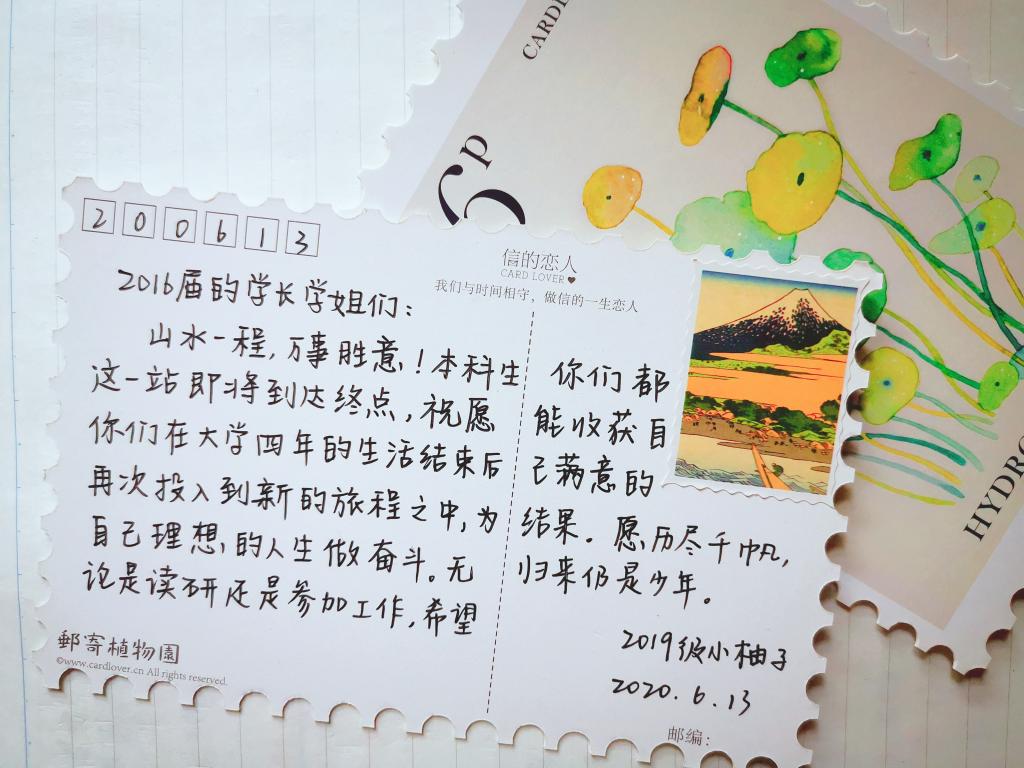 CARDL
6p
HYDRO
200613
信的恋人
CARD LOVER♥
我们与时间相守，做信的一生恋人
2016届的学长学姐们：
山水一程，万事胜意！本科生
这一站即将到达终点，祝愿
你们在大学四年的生活结束后
再次投入到新的旅程之中，为
自己理想的人生做奋斗。无
论是读研还是参加工作，希望
你们都
能收获自
己满意的
结果。愿历尽千帆，
归来仍是少年。
2019级小柚子
2020.6.13
郵寄植物園
©www.cardlover.cn All rights reserved.
邮编：